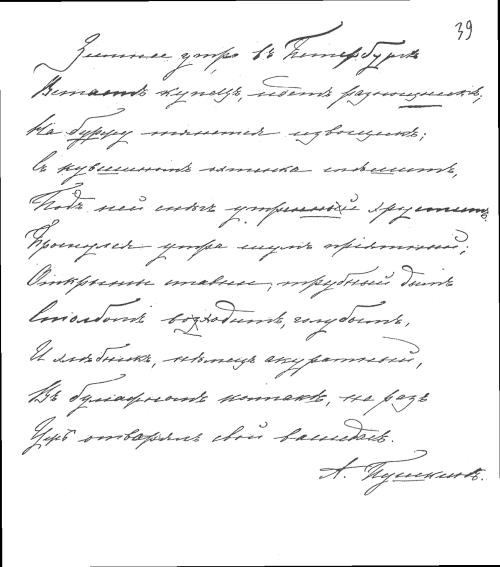 39
Зимнее утро въ Петербургѣ
Встаетъ купецъ, идетъ разнощикъ;
На буржу тянется извощикъ;
Съ кувшиномъ охтинка спѣшитъ,
Подъ ней снѣгъ утренній хруститъ.
Проснулся утра шумъ пріятный;
Открыты ставни, трубный дымъ
Столбомъ восходитъ, голубымъ,
И хлѣбникъ, нѣмецъ акуратный,
Въ бумажномъ колпакѣ, не разъ
Ужъ отворялъ свой васисдасъ.
А. Пушкинъ.